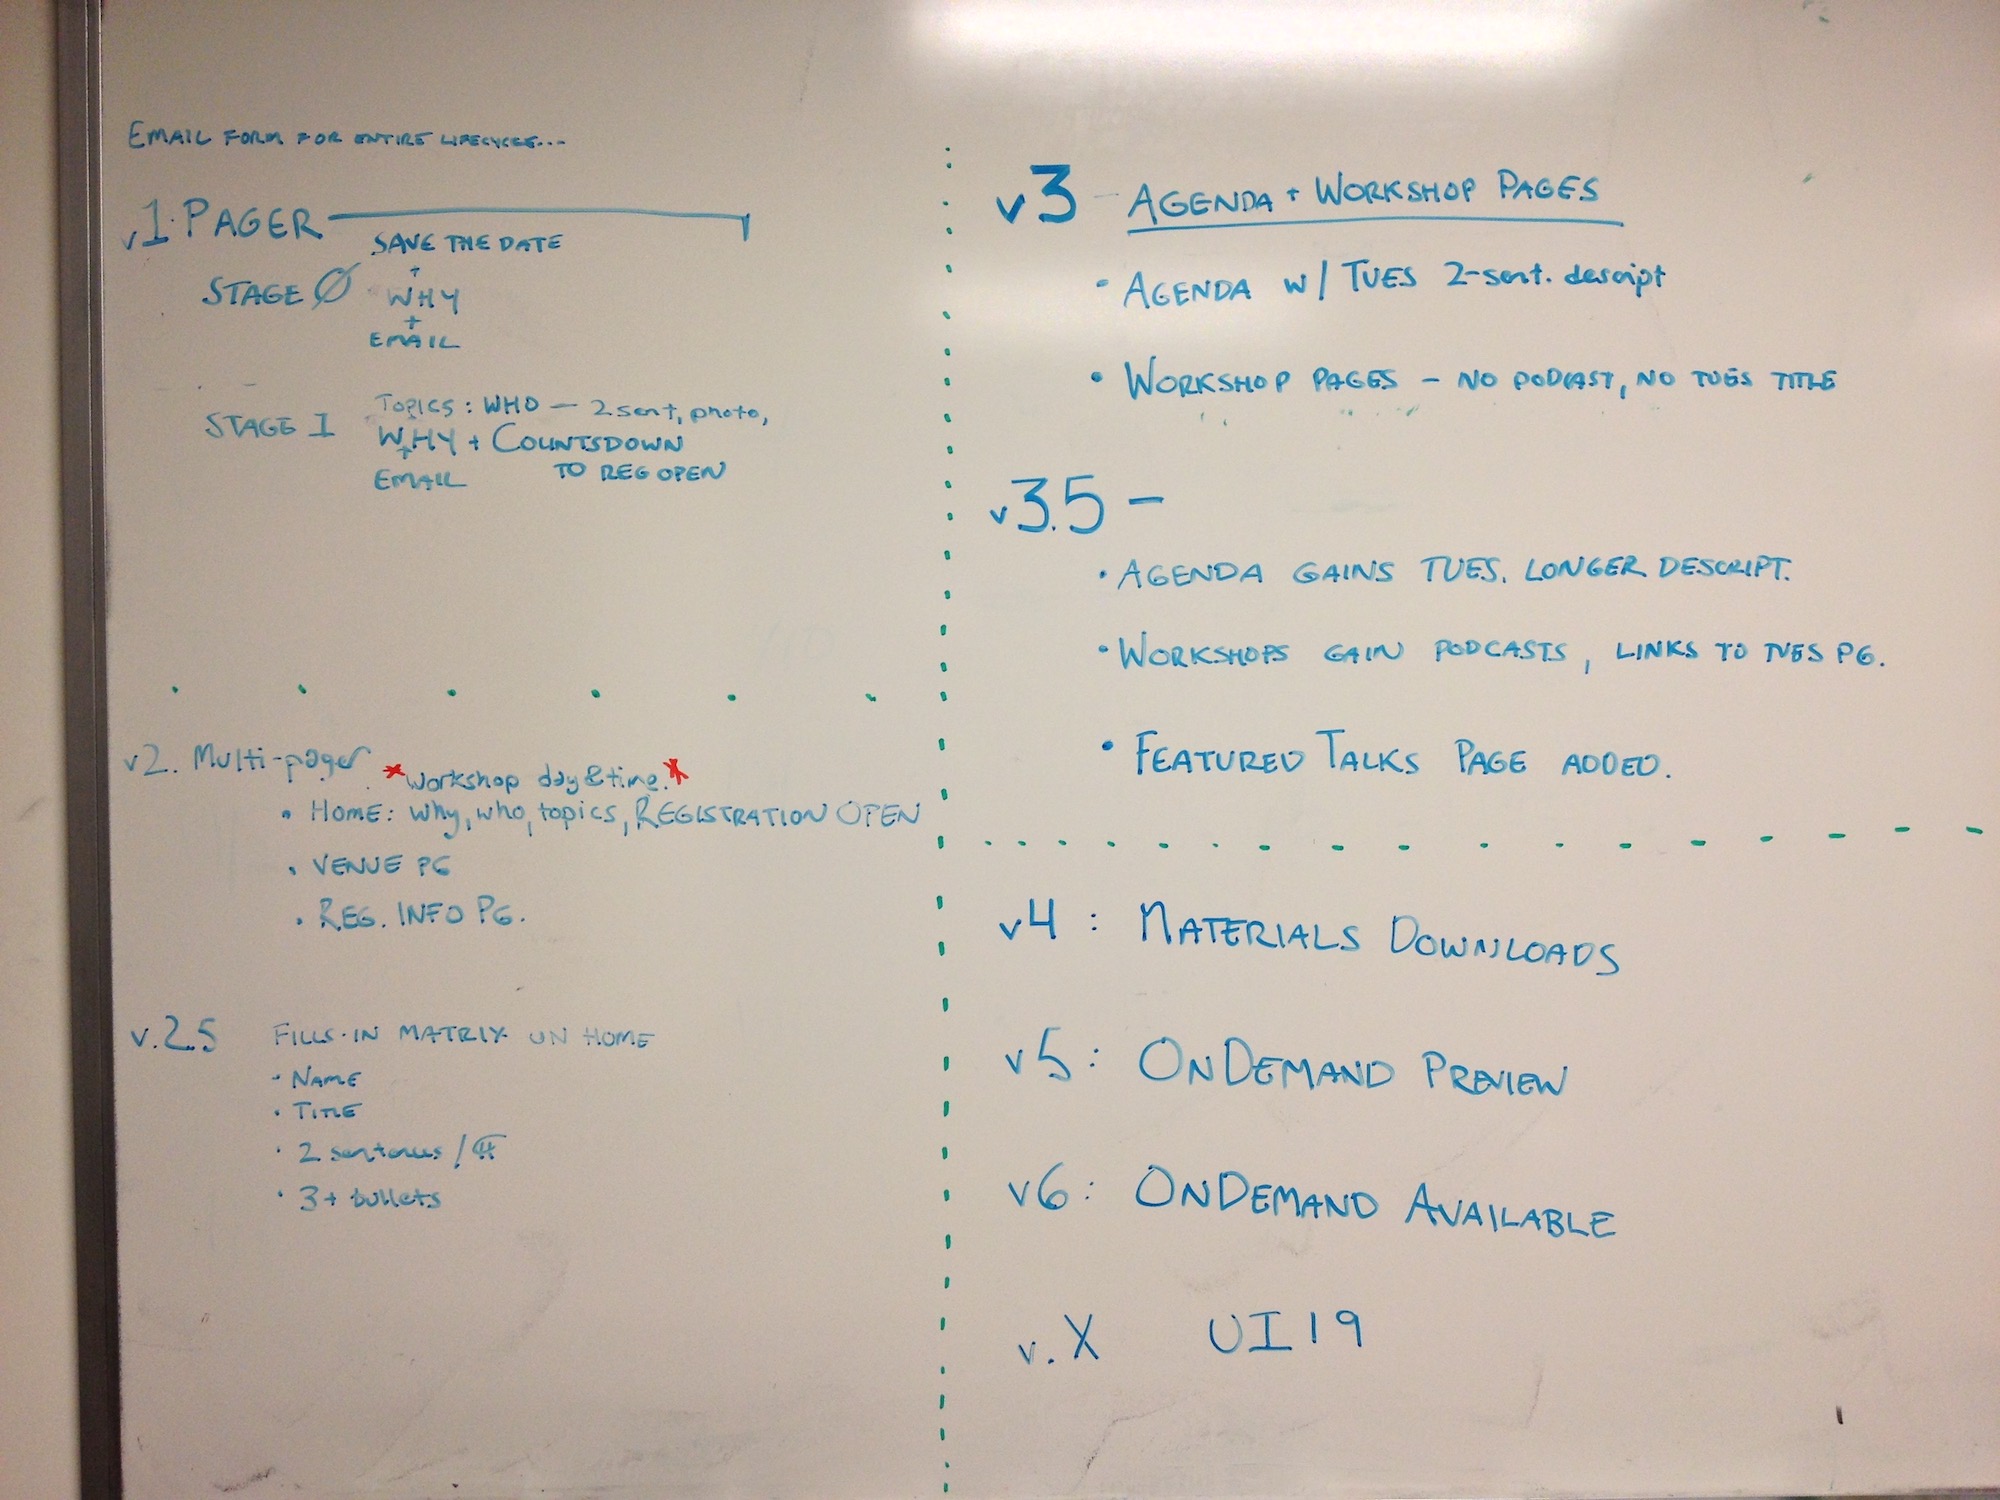 EMAIL FORM FOR ENTIRE LIFECYCLE...
v1. PAGER
SAVE THE DATE
+
STAGE Ø WHY
+
EMAIL
TOPICS: WHO — 2 sent, photo,
STAGE I WHY + COUNTSDOWN
+
EMAIL TO REG OPEN
v2. Multi-pager
*workshop day & time.*
• HOME: why, who, topics, REGISTRATION OPEN
• VENUE PG
• REG. INFO PG.
v.2.5 FILLS-IN MATRIX ON HOME
• NAME
• TITLE
• 2 sentences /
• 3+ bullets
v3 - AGENDA + WORKSHOP PAGES
• AGENDA w/ TUES 2-sent. descript
• WORKSHOP PAGES – NO PODCAST, NO TUES TITLE
v3.5 –
• AGENDA GAINS TUES. LONGER DESCRIPT.
• WORKSHOPS GAIN PODCASTS, LINKS TO TUES PG.
• FEATURED TALKS PAGE ADDED.
v4: MATERIALS DOWNLOADS
v5: ONDEMAND PREVIEW
v6: ONDEMAND AVAILABLE
v.X UI19